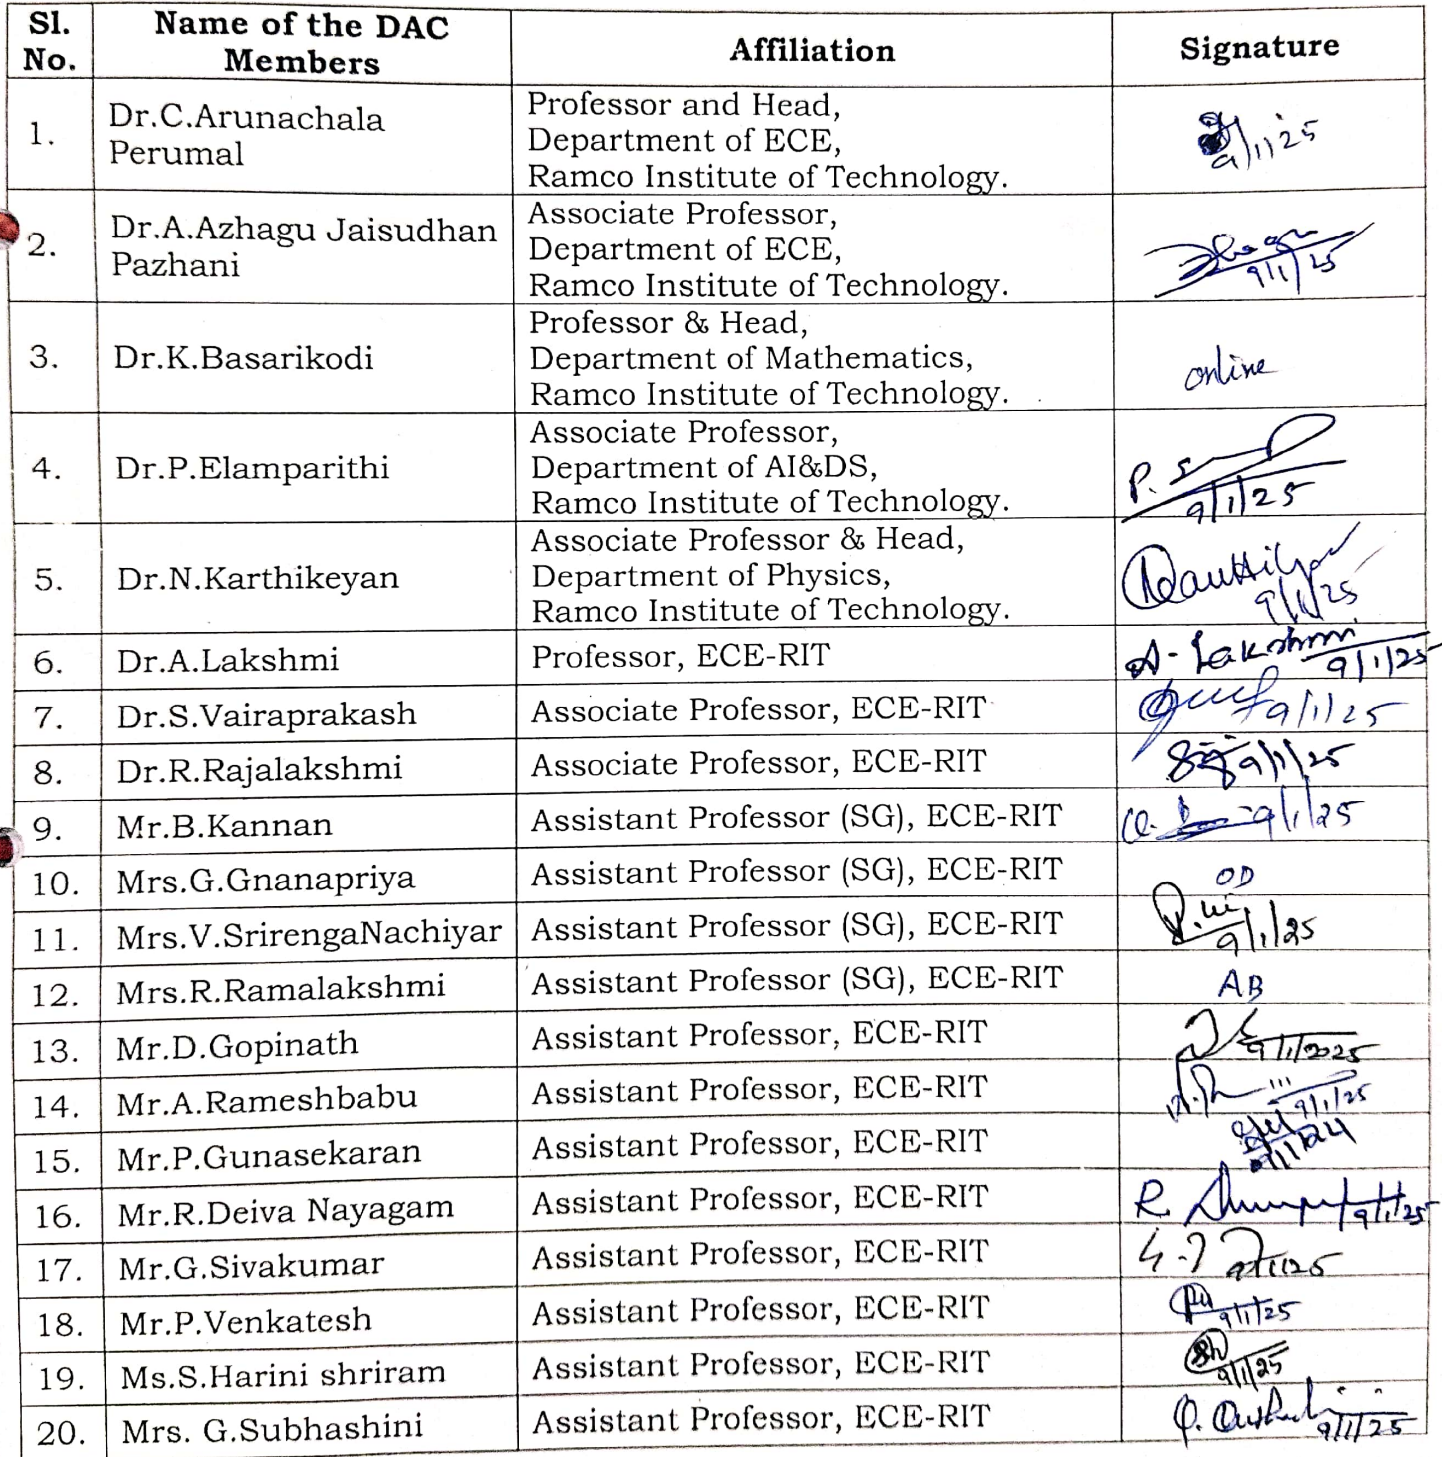 Sl. No. Name of the DAC Members Affiliation Signature
1. Dr.C.Arunachala Perumal Professor and Head, Department of ECE, Ramco Institute of Technology. 9/1/25
2. Dr.A.Azhagu Jaisudhan Pazhani Associate Professor, Department of ECE, Ramco Institute of Technology. 9/1/25
3. Dr.K.Basarikodi Professor & Head, Department of Mathematics, Ramco Institute of Technology. online
4. Dr.P.Elamparithi Associate Professor, Department of AI&DS, Ramco Institute of Technology. 9/1/25
5. Dr.N.Karthikeyan Associate Professor & Head, Department of Physics, Ramco Institute of Technology. 9/1/25
6. Dr.A.Lakshmi Professor, ECE-RIT A. Lakshmi 9/1/25
7. Dr.S.Vairaprakash Associate Professor, ECE-RIT 9/1/25
8. Dr.R.Rajalakshmi Associate Professor, ECE-RIT 9/1/25
9. Mr.B.Kannan Assistant Professor (SG), ECE-RIT 9/1/25
10. Mrs.G.Gnanapriya Assistant Professor (SG), ECE-RIT OD
11. Mrs.V.SrirengaNachiyar Assistant Professor (SG), ECE-RIT 9/1/25
12. Mrs.R.Ramalakshmi Assistant Professor (SG), ECE-RIT AB
13. Mr.D.Gopinath Assistant Professor, ECE-RIT 9/1/2025
14. Mr.A.Rameshbabu Assistant Professor, ECE-RIT 9/1/25
15. Mr.P.Gunasekaran Assistant Professor, ECE-RIT
16. Mr.R.Deiva Nayagam Assistant Professor, ECE-RIT 9/1/25
17. Mr.G.Sivakumar Assistant Professor, ECE-RIT 9/1/25
18. Mr.P.Venkatesh Assistant Professor, ECE-RIT 9/1/25
19. Ms.S.Harini shriram Assistant Professor, ECE-RIT 9/1/25
20. Mrs. G.Subhashini Assistant Professor, ECE-RIT 9/1/25